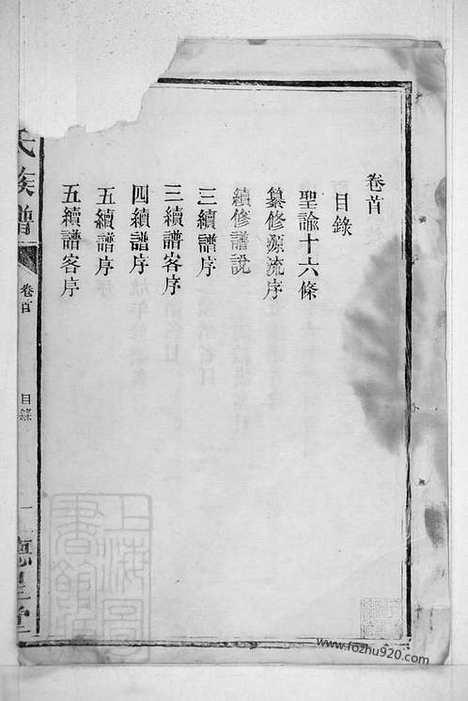 卷首
目錄
聖諭十六條
纂修源流序
續修譜說
三續譜序
三續譜客序
四續譜序
五續譜序
五續譜客序
氏族譜
卷首
目錄
一
堂
上海圖
書館藏
www.fozhu920.com